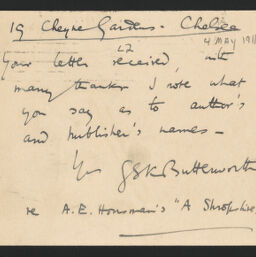 19 Cheyne Gardens. Chelsea
4 MAY 1911
Your letter received, with
many thanks. I note what
you say as to author's
and publisher's names —
Yrs GSKButterworth
re A. E. Housman's "A Shropshire